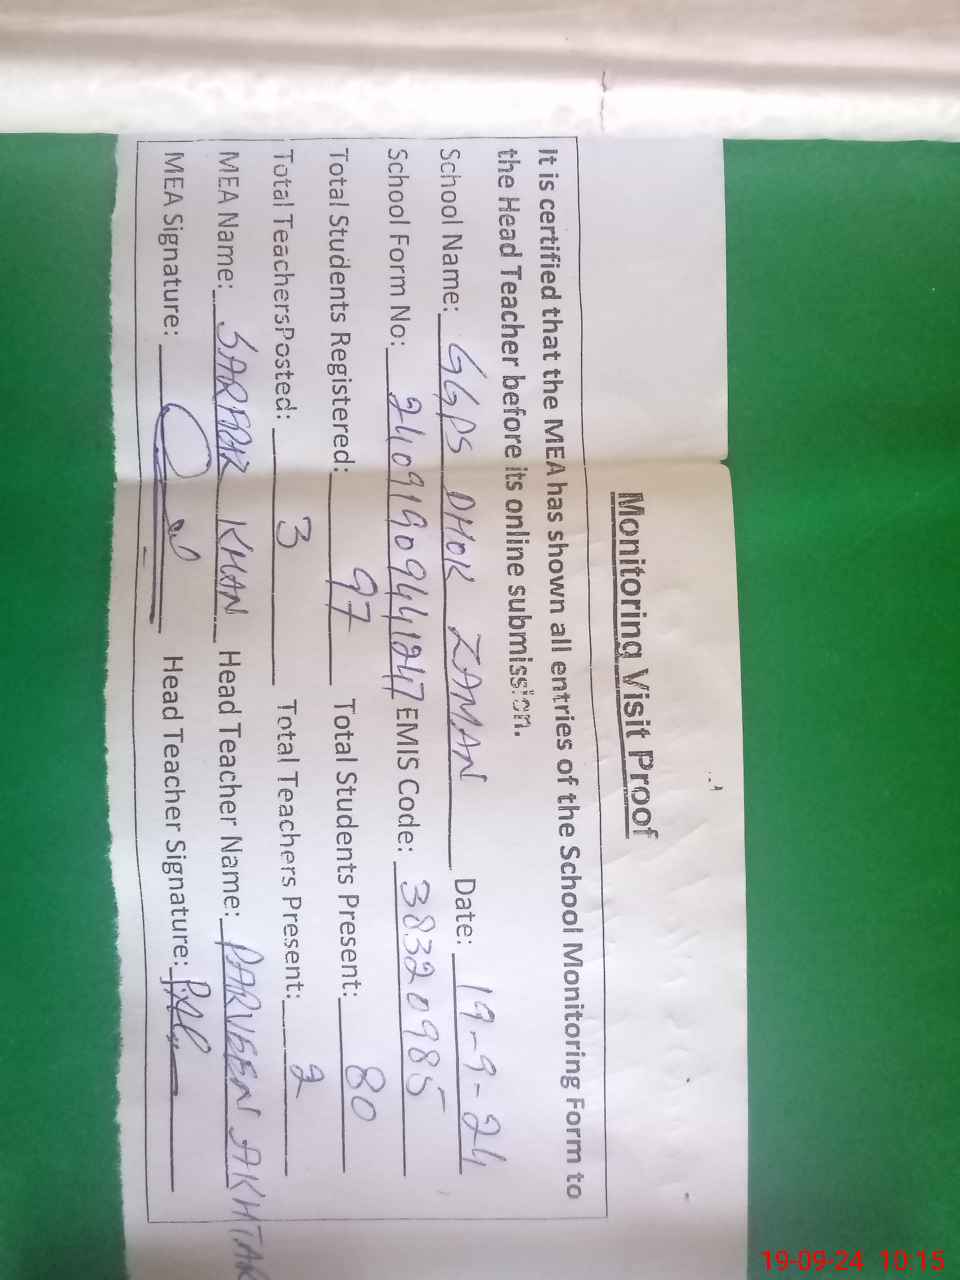 Monitoring Visit Proof
It is certified that the MEA has shown all entries of the School Monitoring Form to
the Head Teacher before its online submission.
School Name: GGPS DHOK ZAMAN Date: 19-9-24
School Form No: 24091909441247 EMIS Code: 38320985
Total Students Registered: 97 Total Students Present: 80
Total TeachersPosted: 3 Total Teachers Present: 2
MEA Name: SARDAR KHAN Head Teacher Name: PARVEEN AKHTAR
MEA Signature: Head Teacher Signature:
19-09-24 10:15